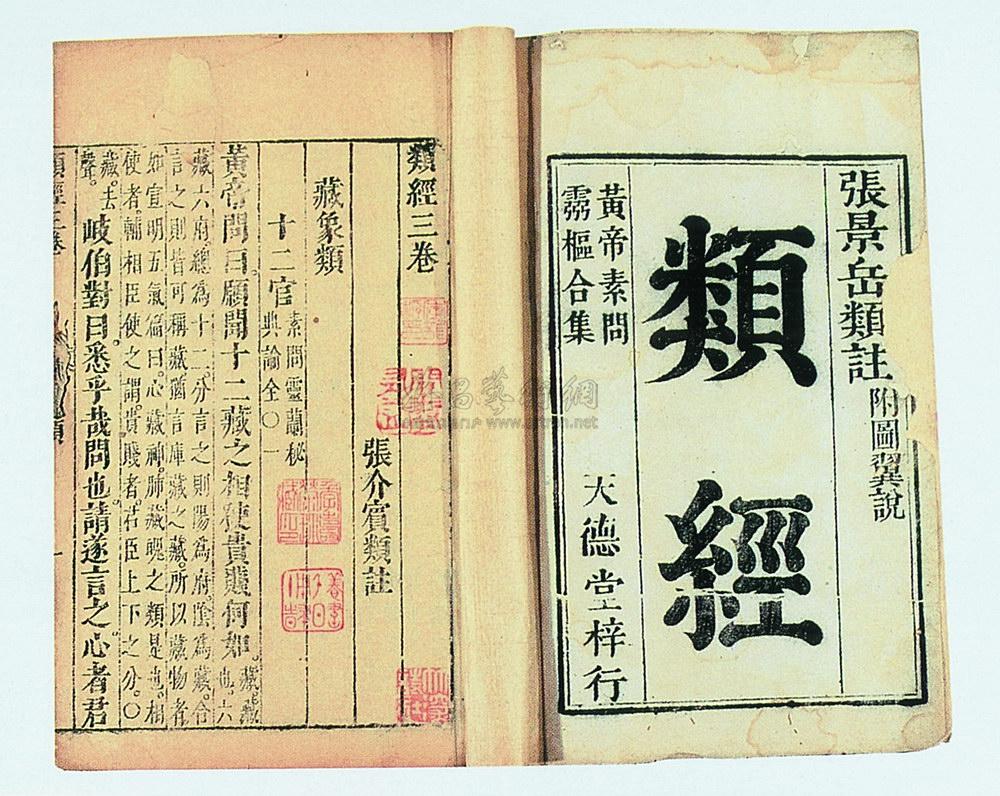 張景岳類註 附圖翼說
類經
黃帝素問
靈樞合集
天德堂梓行
類經三卷
張介賓類註
藏象類
十二官 素問靈蘭秘
典論全○一
黃帝問曰願聞十二藏之相使貴賤何如 藏藏
也六
藏六府總為十二分言之則陽為府陰為藏合
言之則皆可稱藏猶言庫藏之藏所以藏物者
如宣明五氣篇曰心藏神肺藏魄之類是也相
使者輔相臣使之謂貴賤者君臣上下之分○
藏去
聲 岐伯對曰悉乎哉問也請遂言之心者君
類經三卷
www.artron.net